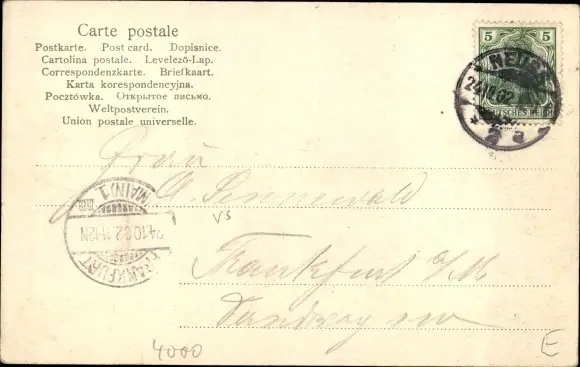 Carte postale
Postkarte. Post card. Dopisnice.
Cartolina postale. Levelező-Lap.
Correspondenzkarte. Briefkaart.
Karta korespondencyjna.
Pocztówka. Открытое письмо.
Weltpostverein.
Union postale universelle.
5 5
NEUSS
DEUTSCHES REICH
Frau
Sennewald
VS
Frankfurt a/M
FRANKFURT (MAIN) 1
24.10.02 11-12N
4000
E